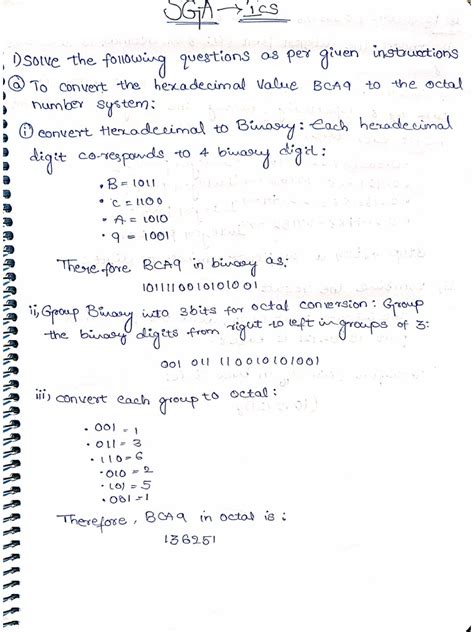 SGA → ICS
1) Solve the following questions as per given instructions
ⓐ To convert the hexadecimal value BCA9 to the octal
number system:
ⓘ convert Hexadecimal to Binary: Each hexadecimal
digit co-responds to 4 binary digit:
• B = 1011
• C = 1100
• A = 1010
• 9 = 1001
Therefore BCA9 in binary as:
1011110010101001
ii, Group Binary into 3bits for octal conversion: Group
the binary digits from right to left in groups of 3:
001 011 110010101001
iii, convert each group to octal:
• 001 = 1
• 011 = 3
• 110 = 6
• 010 = 2
• 101 = 5
• 001 = 1
Therefore, BCA9 in octal is:
136251